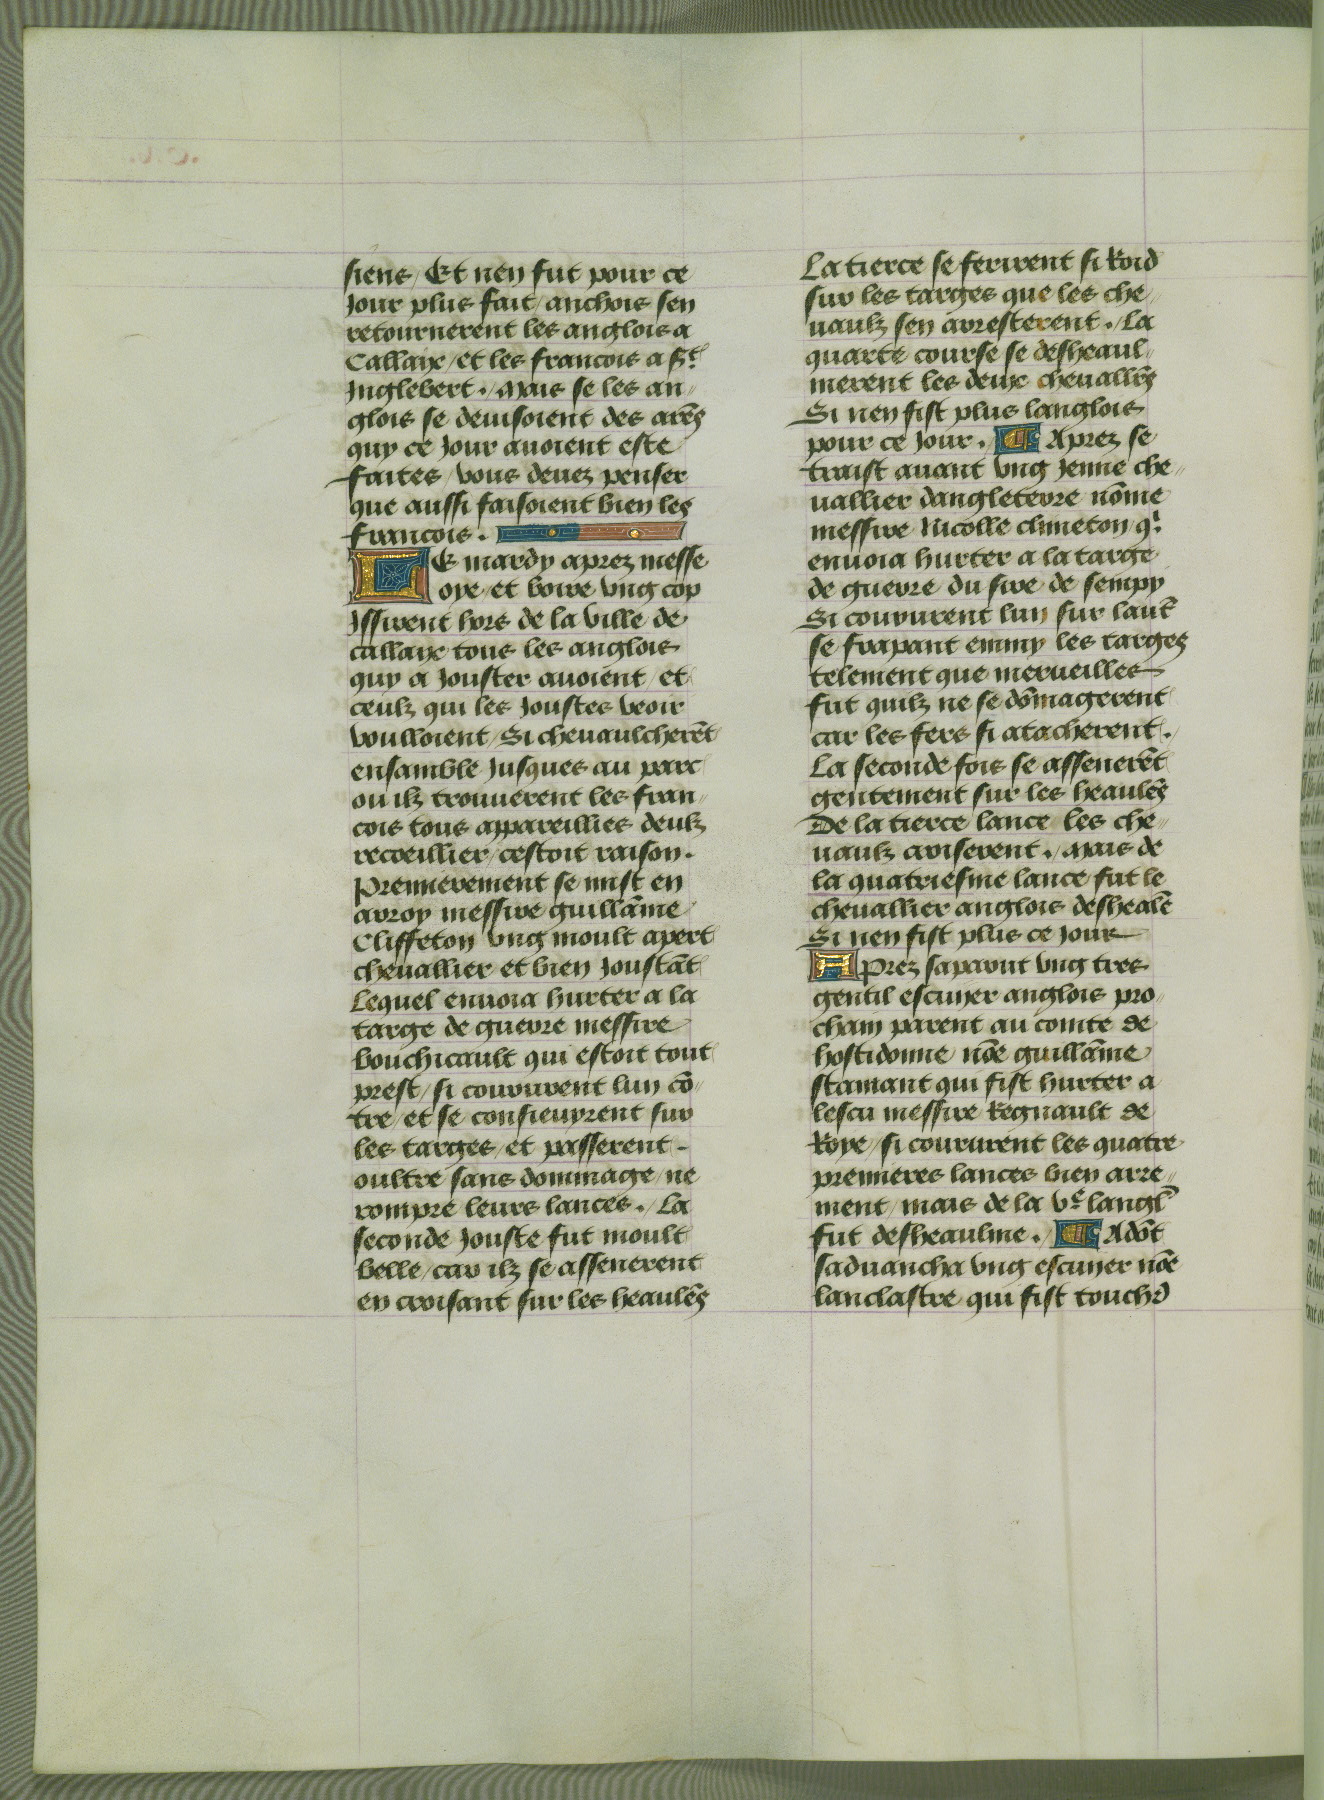 siens / Et nen fut pour ce
Jour plus fait / anchois sen
retournerent les anglois a
Callaix / et les francois a st.
Jnglebert ./ Mais se les an„
glois se deuisoient des arẽs
quy ce Jour auoient este
faites / vous deuez penser
que aussi faisoient bien les
francois .
LE mardy aprez messe
oye / et boire vng cop
Jssirent hors de la ville de
callaix tous les anglois
quy a Jouster auoient / et
ceulz qui les Joustes veoir
voulloient / Si cheuaulcherẽt
ensamble Jusques au parc
ou ilz trouuerent les fran„
cois tous appareillies deulz
recoeillier / cestoit raison .
Premierement se mist en
arroy messire guillãme
Cliffeton vng moult apert
cheuallier et bien Joustãt
Lequel enuoia hurter a la
targe de guerre messire
bouchicault qui estoit tout
prest / si coururent lun cõ„
tre / et se consieuyrent sur
les targes / et passerent -
oultre sans dommage / ne
rompre leurs lances ./ La
seconde Jouste fut moult
belle / car ilz se assenerent
en croisant sur les heaulẽs
La tierce se ferirent si Roid
sur les targes que les che„
uaulz sen arresterent ./ La
quarte course se desheaul„
merent les deux cheualliẽs
Si nen fist plus langlois
pour ce Jour ./ ¶ Aprez se
traist auant vng Jenne che„
uallier dangleterre nõme
messire Nicolle climeton qi
enuoia hurter a la targe
de guerre du sire de sempy
Si coururent lun sur laut̃
se frapant emmy les targes
telement que merueilles
fut quilz ne se dõmagerent
car les fers si atacherent .
La seconde fois se assenerẽt
gentement sur les heaulẽs
De la tierce lance les che„
uaulz croiserent ./ Mais de
la quatriesme lance fut le
cheuallier anglois deshealẽ
Si nen fist plus ce Jour
APrez saparut vng tres
gentil escuyer anglois pro„
chain parent au comte de
hostidonne nõe guillãme
stamant qui fist hurter a
lescu messire Regnault de
Roye / si coururent les quatre
premieres lances bien arre„
ment / mais de la ve langl̃
fut desheaulme ./ ¶ Adõt
saduancha vng escuyer nõe
lanclastre qui fist touch̃